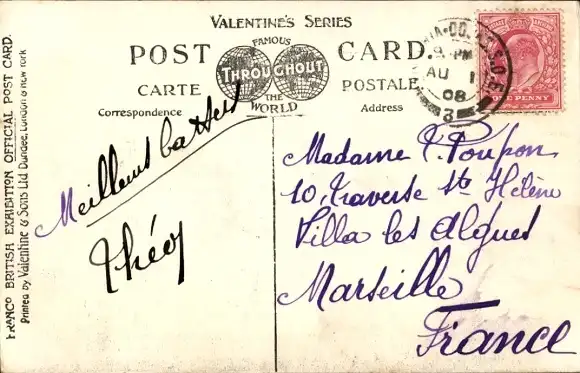 VALENTINE'S SERIES
POST CARD.
FAMOUS
THROUGHOUT
THE
WORLD
CARTE POSTALE
Correspondence
Address
9. PM
AU 1
08
3
ONE PENNY
Meilleurs
Théo
Madame P. Poupon
10, Traverse Ste Hélène
Villa les Algues
Marseille
France
FRANCO BRITISH EXHIBITION OFFICIAL POST CARD.
Printed by Valentine & Sons Ltd Dundee, London & New York